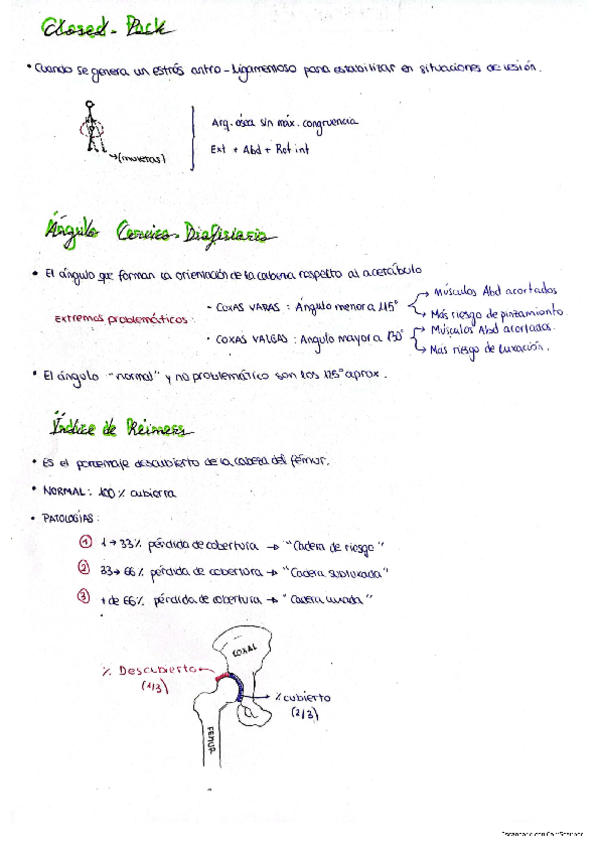 Closed-Pack
• Cuando se genera un estrés antro-ligamentoso para estabilizar en situaciones de lesión.
Arq. ósea sin máx. congruencia
→(muletas)
Ext + Abd + Rot int
Ángulo Cervico-Diafisiario
• El ángulo que forman la orientación de la cabeza respecto al acetábulo
Extremos problemáticos:
- COXAS VARAS: Ángulo menor a 115° → Músculos Abd acortados
→ Más riesgo de pinzamiento
• COXAS VALGAS: Ángulo mayor a 130° → Músculos Abd acortados.
→ Más riesgo de luxación.
• El ángulo "normal" y no problemático son los 125° aprox.
Índice de Reimers
• Es el porcentaje descubierto de la cabeza del fémur.
• NORMAL: 100% cubierta
• PATOLOGÍAS:
① 1→33% pérdida de cobertura → "Cadera de riesgo"
② 33→66% pérdida de cobertura → "Cadera subluxada"
③ + de 66% pérdida de cobertura → "Cadera luxada"
COXAL
% Descubierto
(1/3)
→ % cubierto
(2/3)
FEMUR
Escaneado con CamScanner